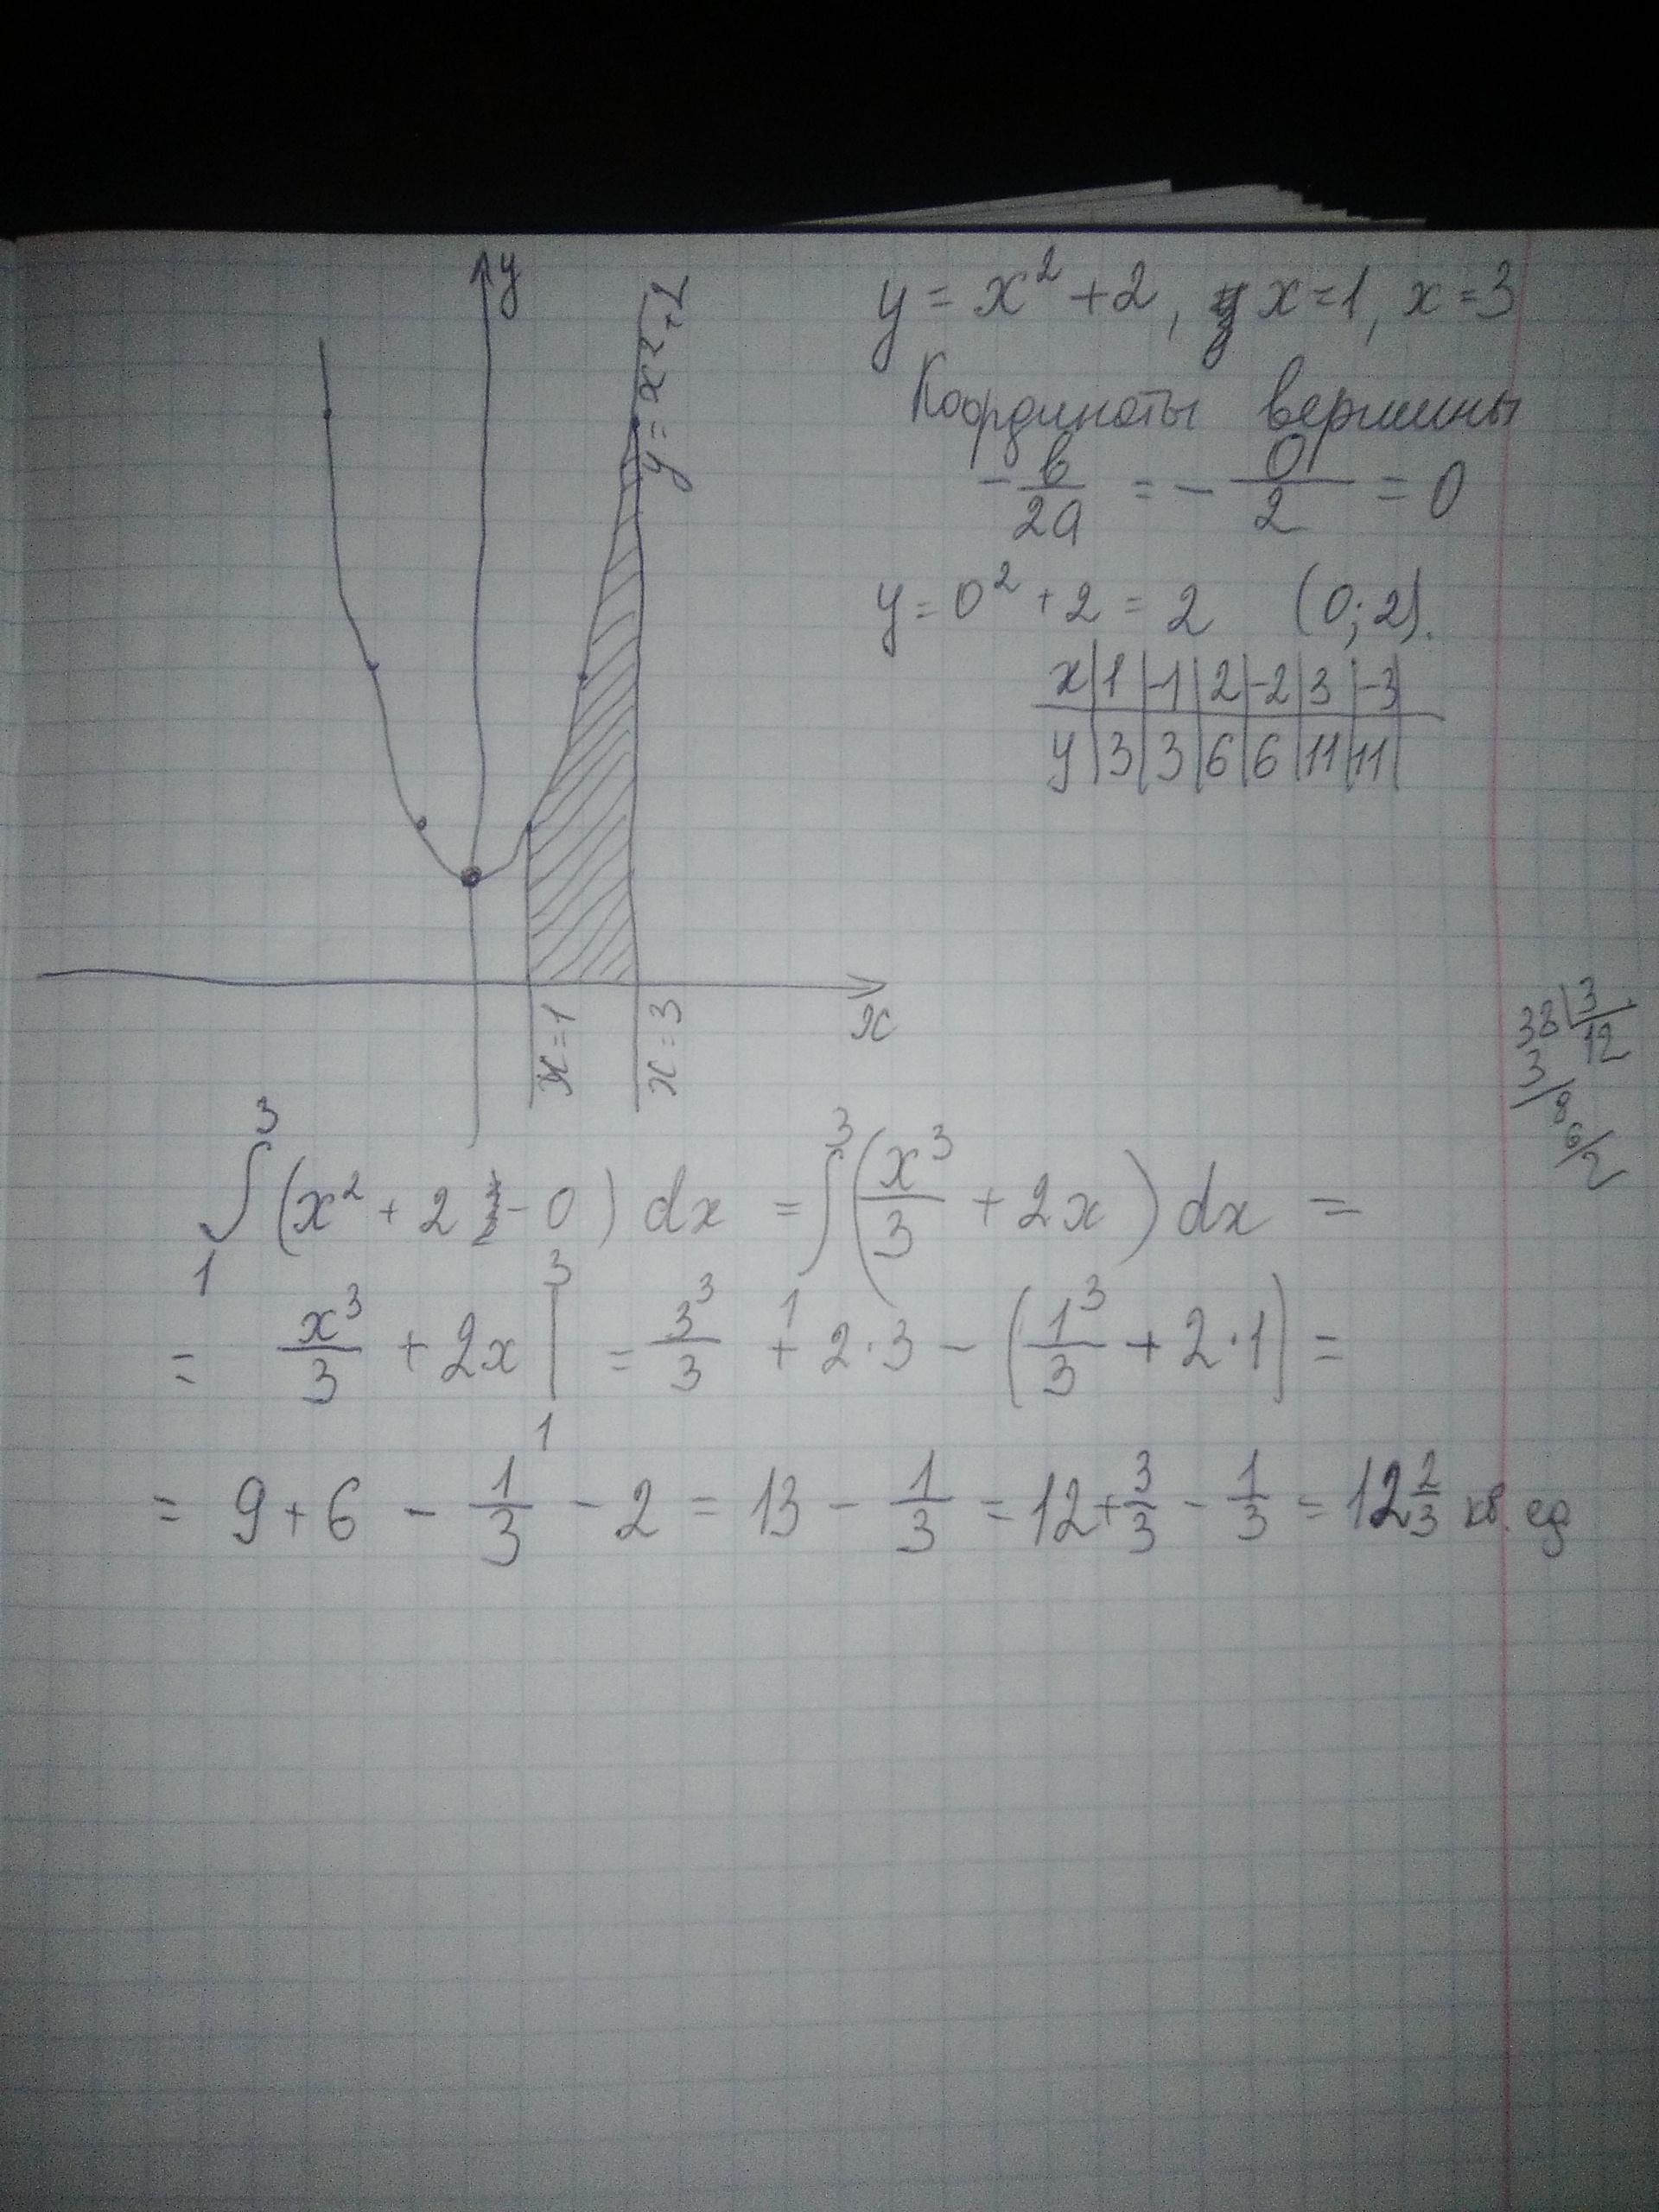 y
y = x² + 2
y = x² + 2, x = 1, x = 3
Координаты вершины
- в/2a = - 0/2 = 0
y = 0² + 2 = 2 (0; 2).
x | 1 | -1 | 2 | -2 | 3 | -3
y | 3 | 3 | 6 | 6 | 11 | 11
x = 1
x = 3
x
38 | 3
3 12
8
6
2
∫₁³ (x² + 2 - 0) dx = ∫₁³ (x³/3 + 2x) dx =
= x³/3 + 2x |₁³ = 3³/3 + 2·3 - (1³/3 + 2·1) =
= 9 + 6 - 1/3 - 2 = 13 - 1/3 = 12 + 3/3 - 1/3 = 12 2/3 кв. ед